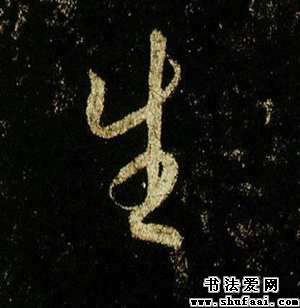 生
书法爱网
www.shufaai.com